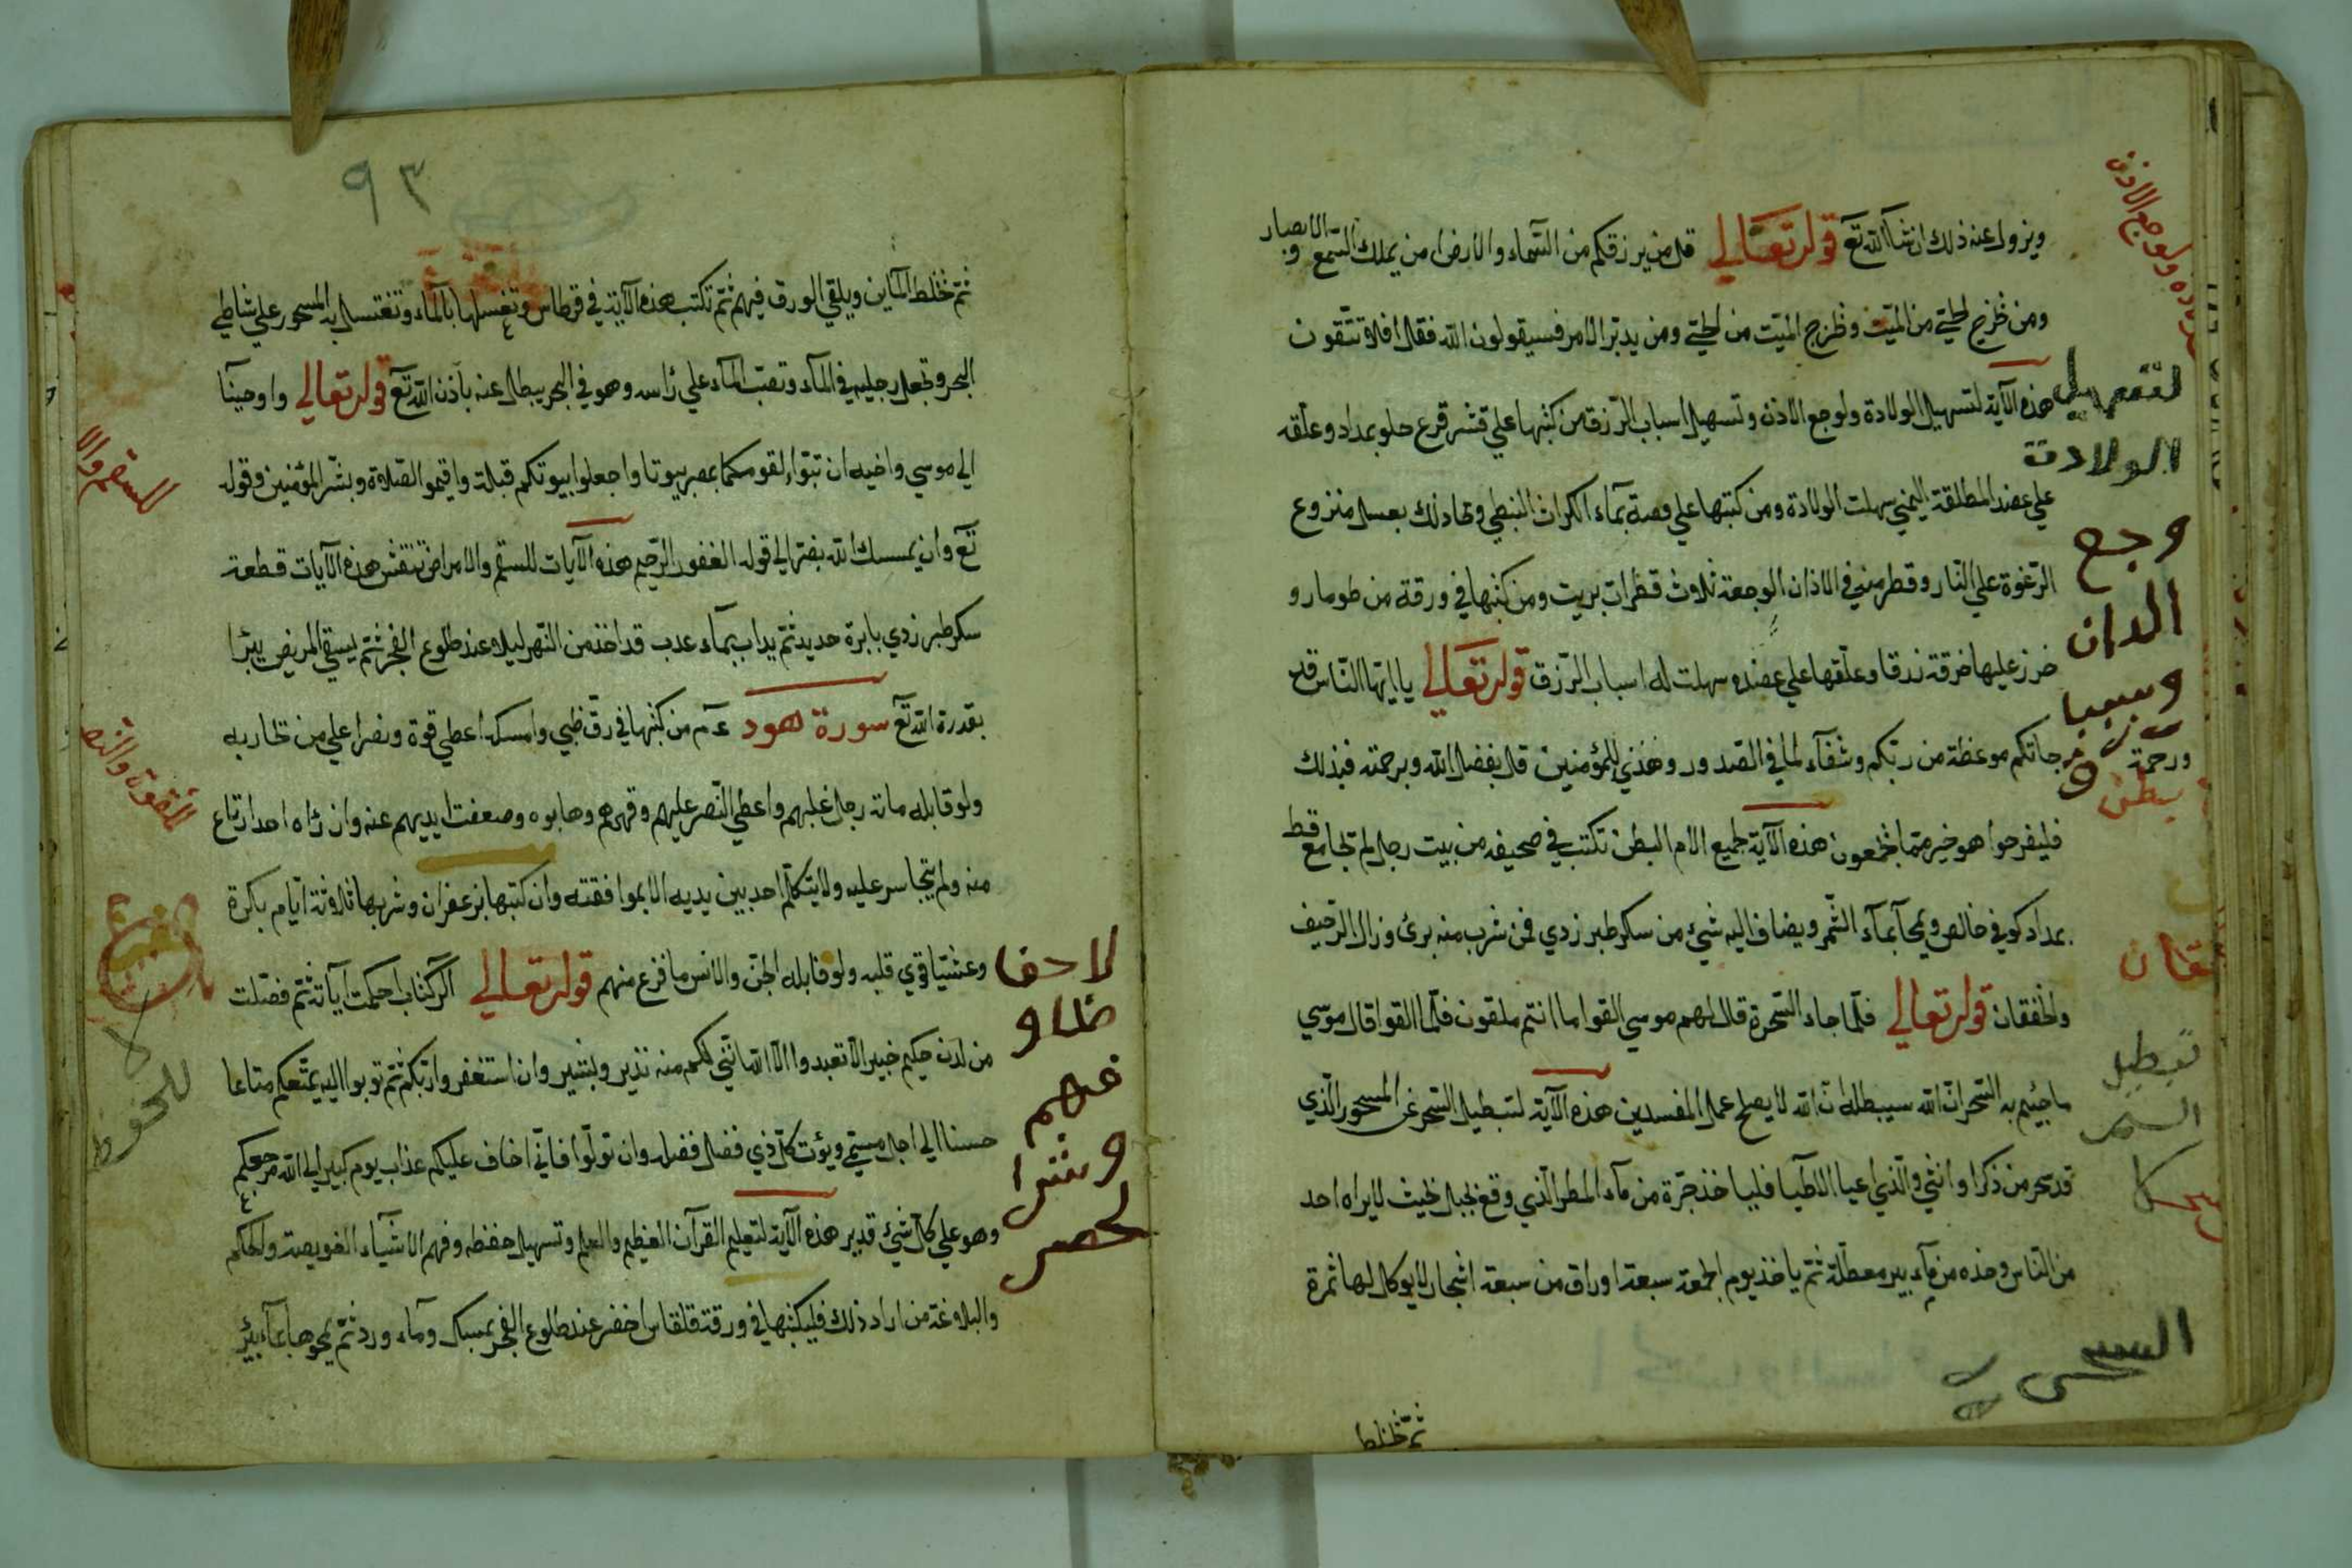 ويزول عنه ذلك ان شآ الله تع قوله تعالي قل من يرزقكم من السماء والارض امن يملك السمع والابصار
ومن يخرج الحي من الميت ويخرج الميت من الحي ومن يدبر الامر فسيقولون الله فقل افلا تتقون
هذه الآية لتسهيل الولادة ولوجع الاذن وتسهيل اسباب الرزق من كتبها علي قشر قرع حلو بمداد وعلقه
علي عضد المطلقة اليمني سهلت الولادة ومن كتبها علي فصة بمآء الكراث النبطي ومحا ذلك بعسل منزوع
الرغوة علي النار وقطر منه في الاذان الوجعة ثلاث قطرات بريت ومن كتبها في ورقة من طومار و
خرز عليها خرقة زرقا وعلقها علي عضده سهلت له اسباب الرزق قوله تعالي ياايها الناس قد
جاتكم موعظة من ربكم وشفآء لما في الصدور وهدي للمؤمنين قل بفضل الله وبرحمته فبذلك
ورحمة
فليفرحوا هو خير مما يجمعون هذه الآية لجميع الام البطن تكتب في صحيفه من بيت رجل لم يجامع قط
بمداد كوفي خالص ويمحآ بمآء الثمر ويضاف اليه شيء من سكر طبرزدي فمن شرب منه برئ وزال الرجيف
والخفقان قوله تعالي فلما جاء السحرة قال لهم موسي القوا ما انتم ملقون فلما القوا قال موسي
ما جئتم به السحر ان الله سيبطله ان الله لا يصلح عمل المفسدين هذه الآية لتبطيل السحر عن المسحور الذي
قد سحر من ذكر او انثي والذي اعيا الاطبا فليا خذ جرة من مآء المطر الذي وقع بجبل بحيث لا يراه احد
من الناس وخذه من مآء بير معطلة ثم يا خذ يوم الجمعة سبعة اوراق من سبعة اشجار لا يوكل لها ثمرة
ثم تخلط
لتسهيل
الولادت
وجع
الدان
يبطن
تبطيل
السحر
٩٣
ثم تخلط المآئين ويلقي الورق فيهم ثم تكتب هذه الآية في قرطاس وتغسلها بالمآء وتغتسل به المسحور علي شاطي
البحر وتجعل رجليه في المآء وتصب المآء علي راسه وهو في البحر يبطل عنه باذن الله تع قوله تعالي واوحينآ
الي موسي واخيه ان تبوءا لقومكما بمصر بيوتا واجعلوا بيوتكم قبلة واقيموا الصلاة وبشر المؤمنين وقوله
تع وان يمسسك الله بضر الي قوله الغفور الرحيم هذه الآيات للسقم والامراض تنقش هذه الآيات قطعة
سكر طبرزدي بابرة حديد ثم يداب بمآء عدب قد اخذ من النهر ليلا عند طلوع الفجر ثم يسقي المريض يبرا
بقدرة الله تع سورة هود عم من كتبها في رق ظبي وامسكه اعطي قوة ونصرا علي من يحاربه
ولو قابله ماتة رجل غلبهم واعطي النصر عليهم وقهرهم وهابوه وضعفت ايديهم عنه وان رآه احد ارتاع
منه ولم يتجاسر عليه ولا يتكلم احد بين يديه الا بموافقته وان كتبها بزعفران وشربها ثلاثة ايام بكرة
وعشيا قوي قلبه ولو قابله الجن والانس ما فزع منهم قوله تعالي الر كتاب احكمت آياته ثم فصلت
من لدن حكيم خبير الا تعبدوا الا الله انني لكم منه نذير وبشير وان استغفروا ربكم ثم توبوا اليه يمتعكم متاعا
حسنا الي اجل مسمي ويؤت كل ذي فضل فضله وان تولوا فاني اخاف عليكم عذاب يوم كبير الي الله مرجعكم
وهو علي كل شيء قدير هذه الآية لتعليم القرآن العظيم والعلم وتسهيل حفظه وفهم الاشيآء الغويصة والحكم
والبلاغة من اراد ذلك فليكتبها في ورقة قلقاس اخضر عند طلوع الفجر بمسك ومآء ورد ثم يمحوها بمآء بئر
للسقم والا
للقوة والنص
للحفوظ